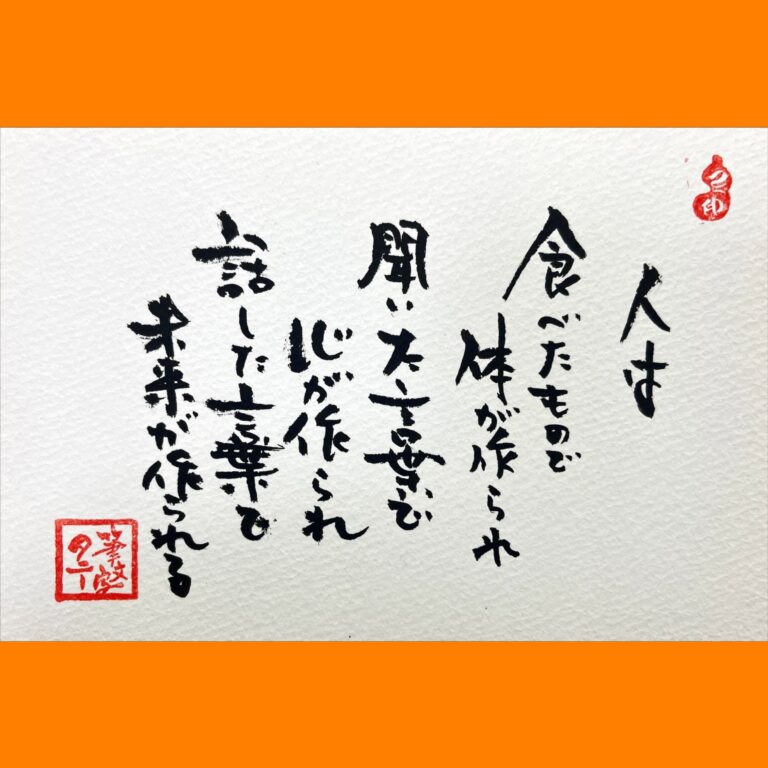 人は
食べたもので
体が作られ
聞いた言葉で
心が作られ
話した言葉で
未来が作られる